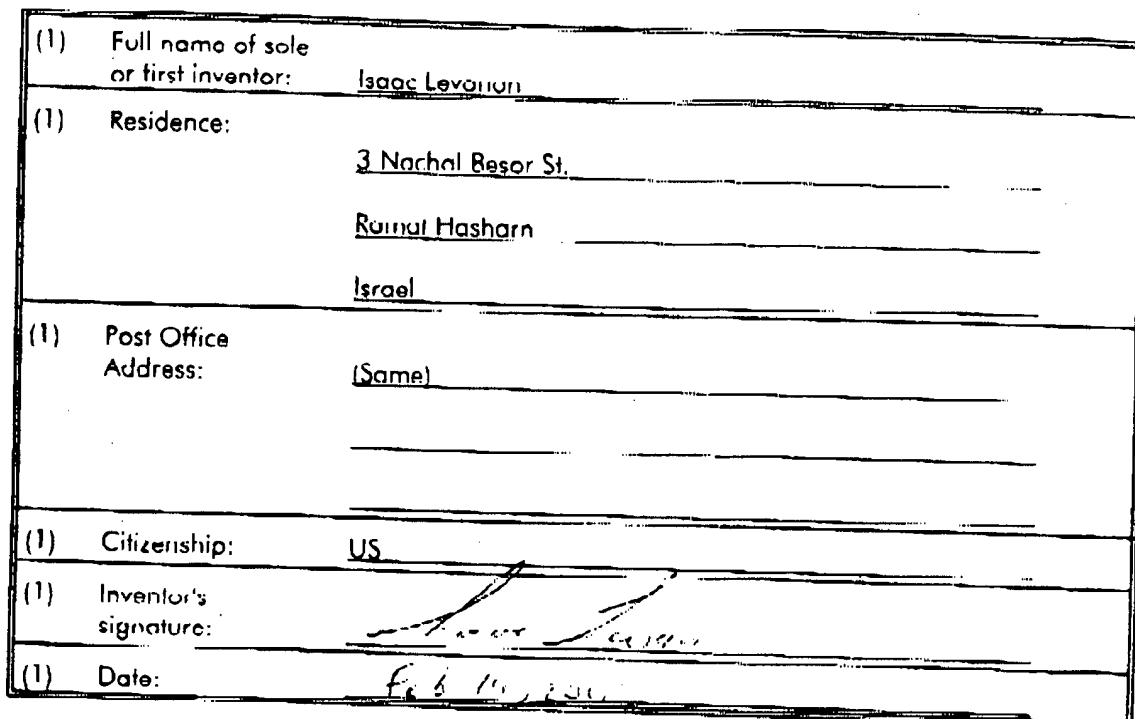 (1) Full name of sole
or first inventor: Isaac Levanon
(1) Residence:
3 Nachal Besor St.
Ramat Hasharn
Israel
(1) Post Office
Address: (Same)
(1) Citizenship: US
(1) Inventor's
signature:
(1) Date: Feb